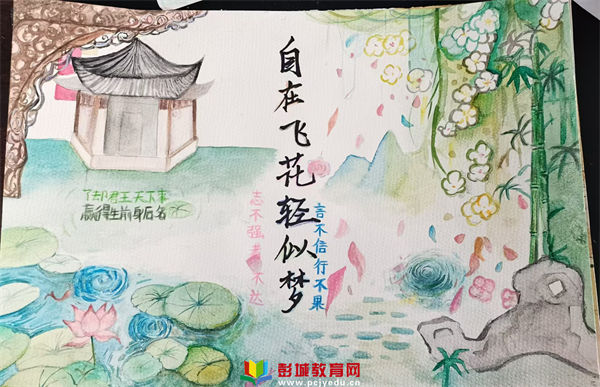 自在飞花轻似梦
言不信行不果
志不强不达
了却君王天下事
赢得生前身后名
彭城教育网
www.pcjyedu.cn